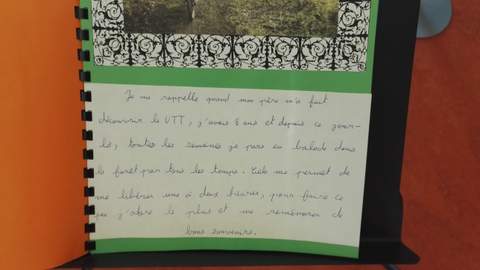 Je me rappelle quand mon père m'a fait
découvrir le VTT, j'avais 8 ans et depuis ce jour-
là, toutes les semaines je pars en balade dans
la forêt par tous les temps. Cela me permet de
me libérer une à deux heures, pour faire ce
que j'adore le plus et me remémorer de
bons souvenirs.